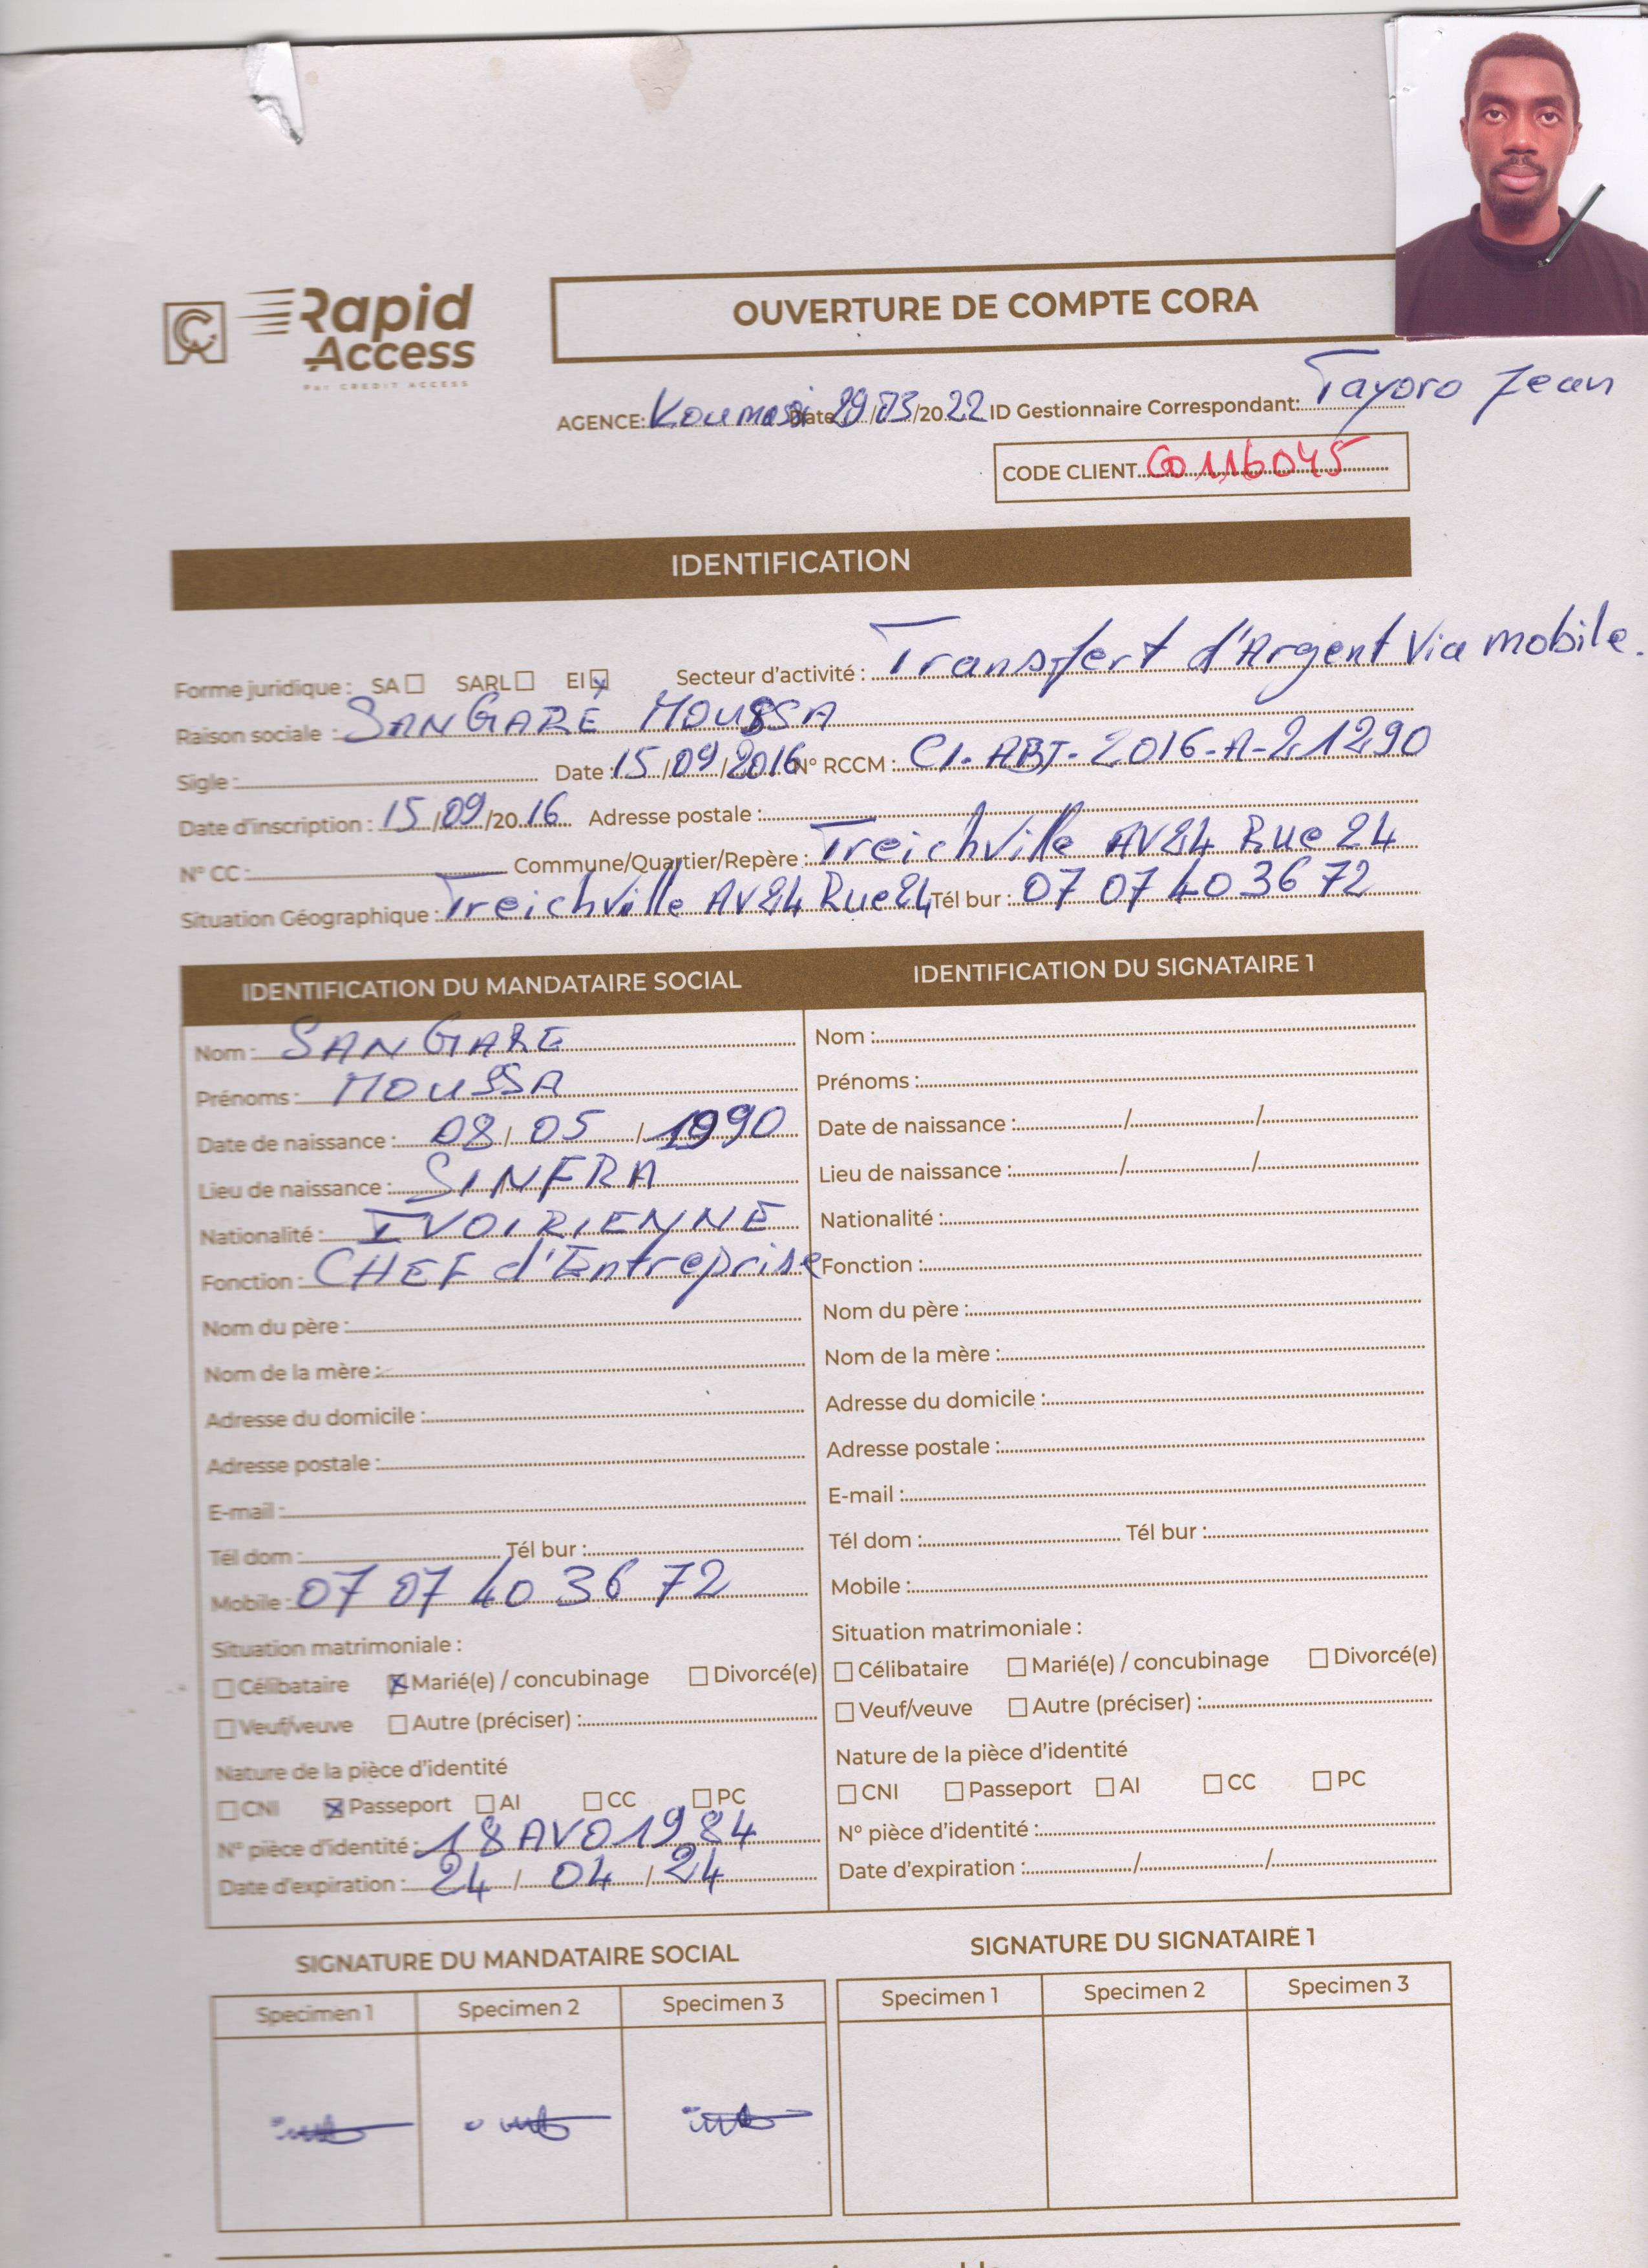 Rapid
Access
Par CREDIT ACCESS
OUVERTURE DE COMPTE CORA
AGENCE: Koumassi Date 29/03/2022 ID Gestionnaire Correspondant: Tayoro Jean
CODE CLIENT 60116045
IDENTIFICATION
Forme juridique : SA SARL EI Secteur d'activité : Transfert d'Argent Via mobile.
Raison sociale : SANGARÉ MOUSSA
Sigle : Date : 15/09/2016 N° RCCM : CI-ABJ-2016-A-21290
Date d'inscription : 15/09/2016 Adresse postale :
N° CC : Commune/Quartier/Repère : Treichville AV24 Rue 24
Situation Géographique : Treichville AV24 Rue24 Tél bur : 07 07 40 36 72
IDENTIFICATION DU MANDATAIRE SOCIAL
Nom : SANGARE
Prénoms : MOUSSA
Date de naissance : 08/05/1990
Lieu de naissance : SINFRA
Nationalité : IVOIRIENNE
Fonction : CHEF d'Entreprise
Nom du père :
Nom de la mère :
Adresse du domicile :
Adresse postale :
E-mail :
Tél dom : Tél bur :
Mobile : 07 07 40 36 72
Situation matrimoniale :
Célibataire Marié(e) / concubinage Divorcé(e)
Veuf/veuve Autre (préciser) :
Nature de la pièce d'identité
CNI Passeport AI CC PC
N° pièce d'identité : 18AV01984
Date d'expiration : 24/04/24
IDENTIFICATION DU SIGNATAIRE 1
Nom :
Prénoms :
Date de naissance : / /
Lieu de naissance : / /
Nationalité :
Fonction :
Nom du père :
Nom de la mère :
Adresse du domicile :
Adresse postale :
E-mail :
Tél dom : Tél bur :
Mobile :
Situation matrimoniale :
Célibataire Marié(e) / concubinage Divorcé(e)
Veuf/veuve Autre (préciser) :
Nature de la pièce d'identité
CNI Passeport AI CC PC
N° pièce d'identité :
Date d'expiration : / /
SIGNATURE DU MANDATAIRE SOCIAL
Specimen 1 Specimen 2 Specimen 3
SIGNATURE DU SIGNATAIRE 1
Specimen 1 Specimen 2 Specimen 3